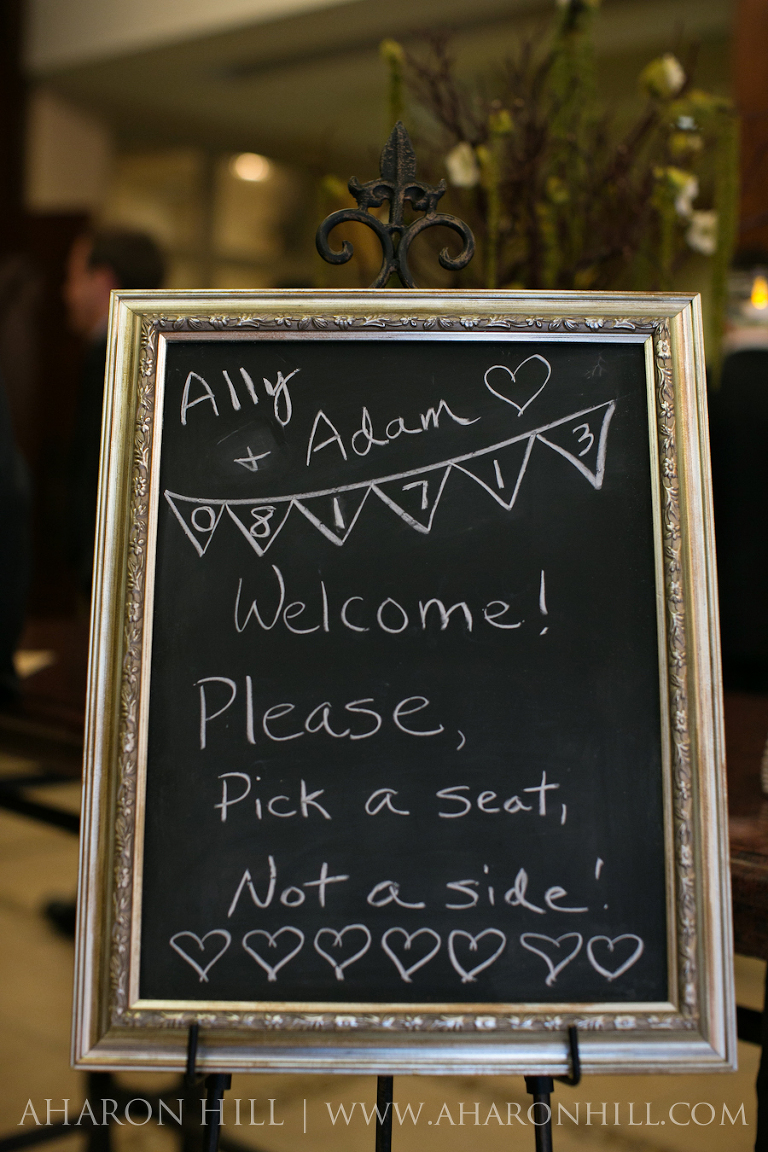 Ally
+ Adam
081713
Welcome!
Please,
Pick a seat,
Not a side!
AHARON HILL | WWW.AHARONHILL.COM